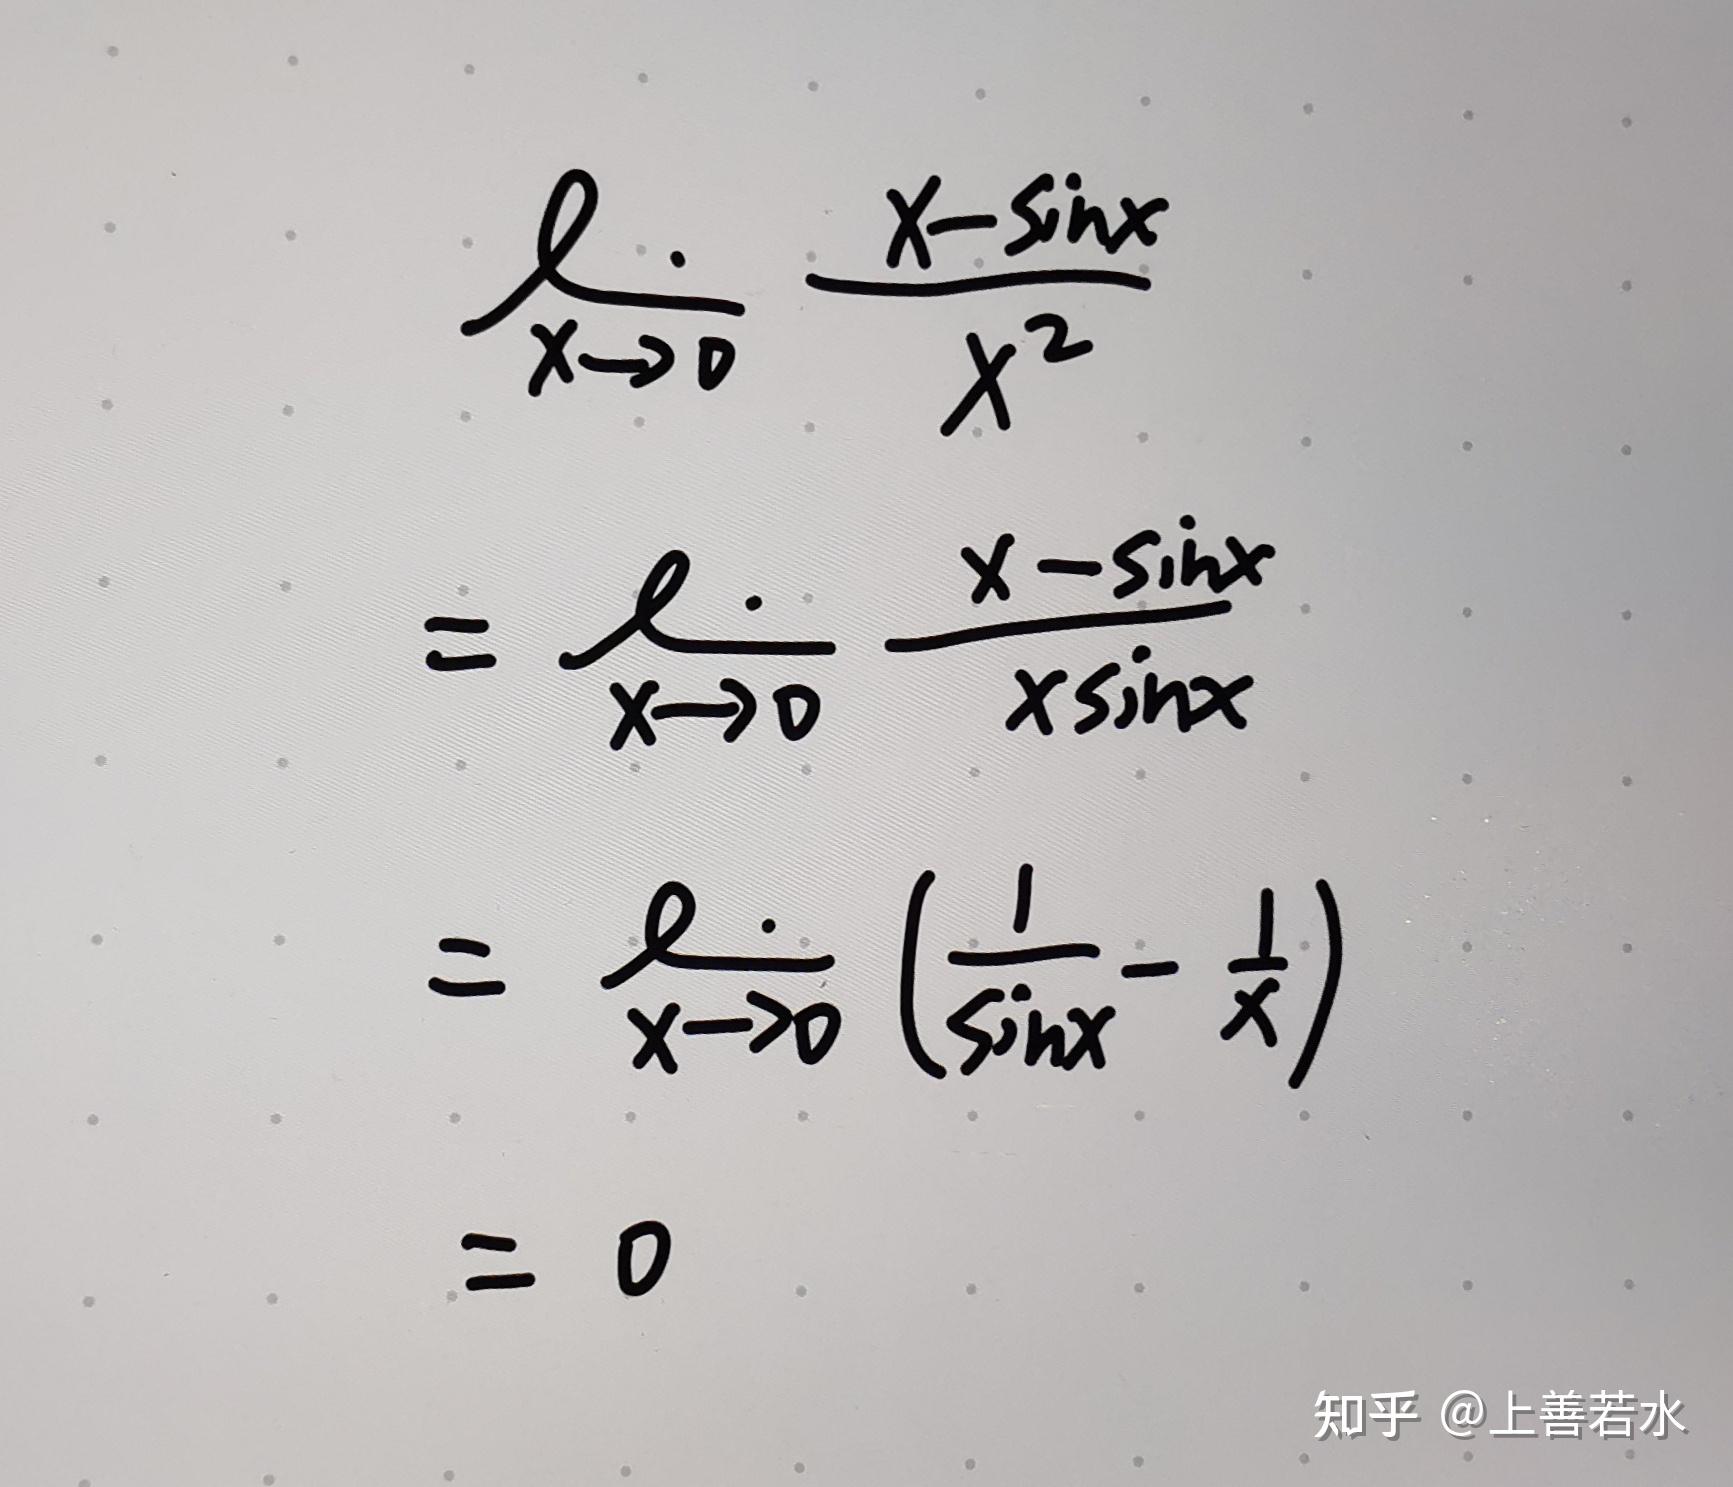 lim x→0 (x-sinx)/x²
= lim x→0 (x-sinx)/(xsinx)
= lim x→0 (1/sinx - 1/x)
= 0
知乎 @上善若水